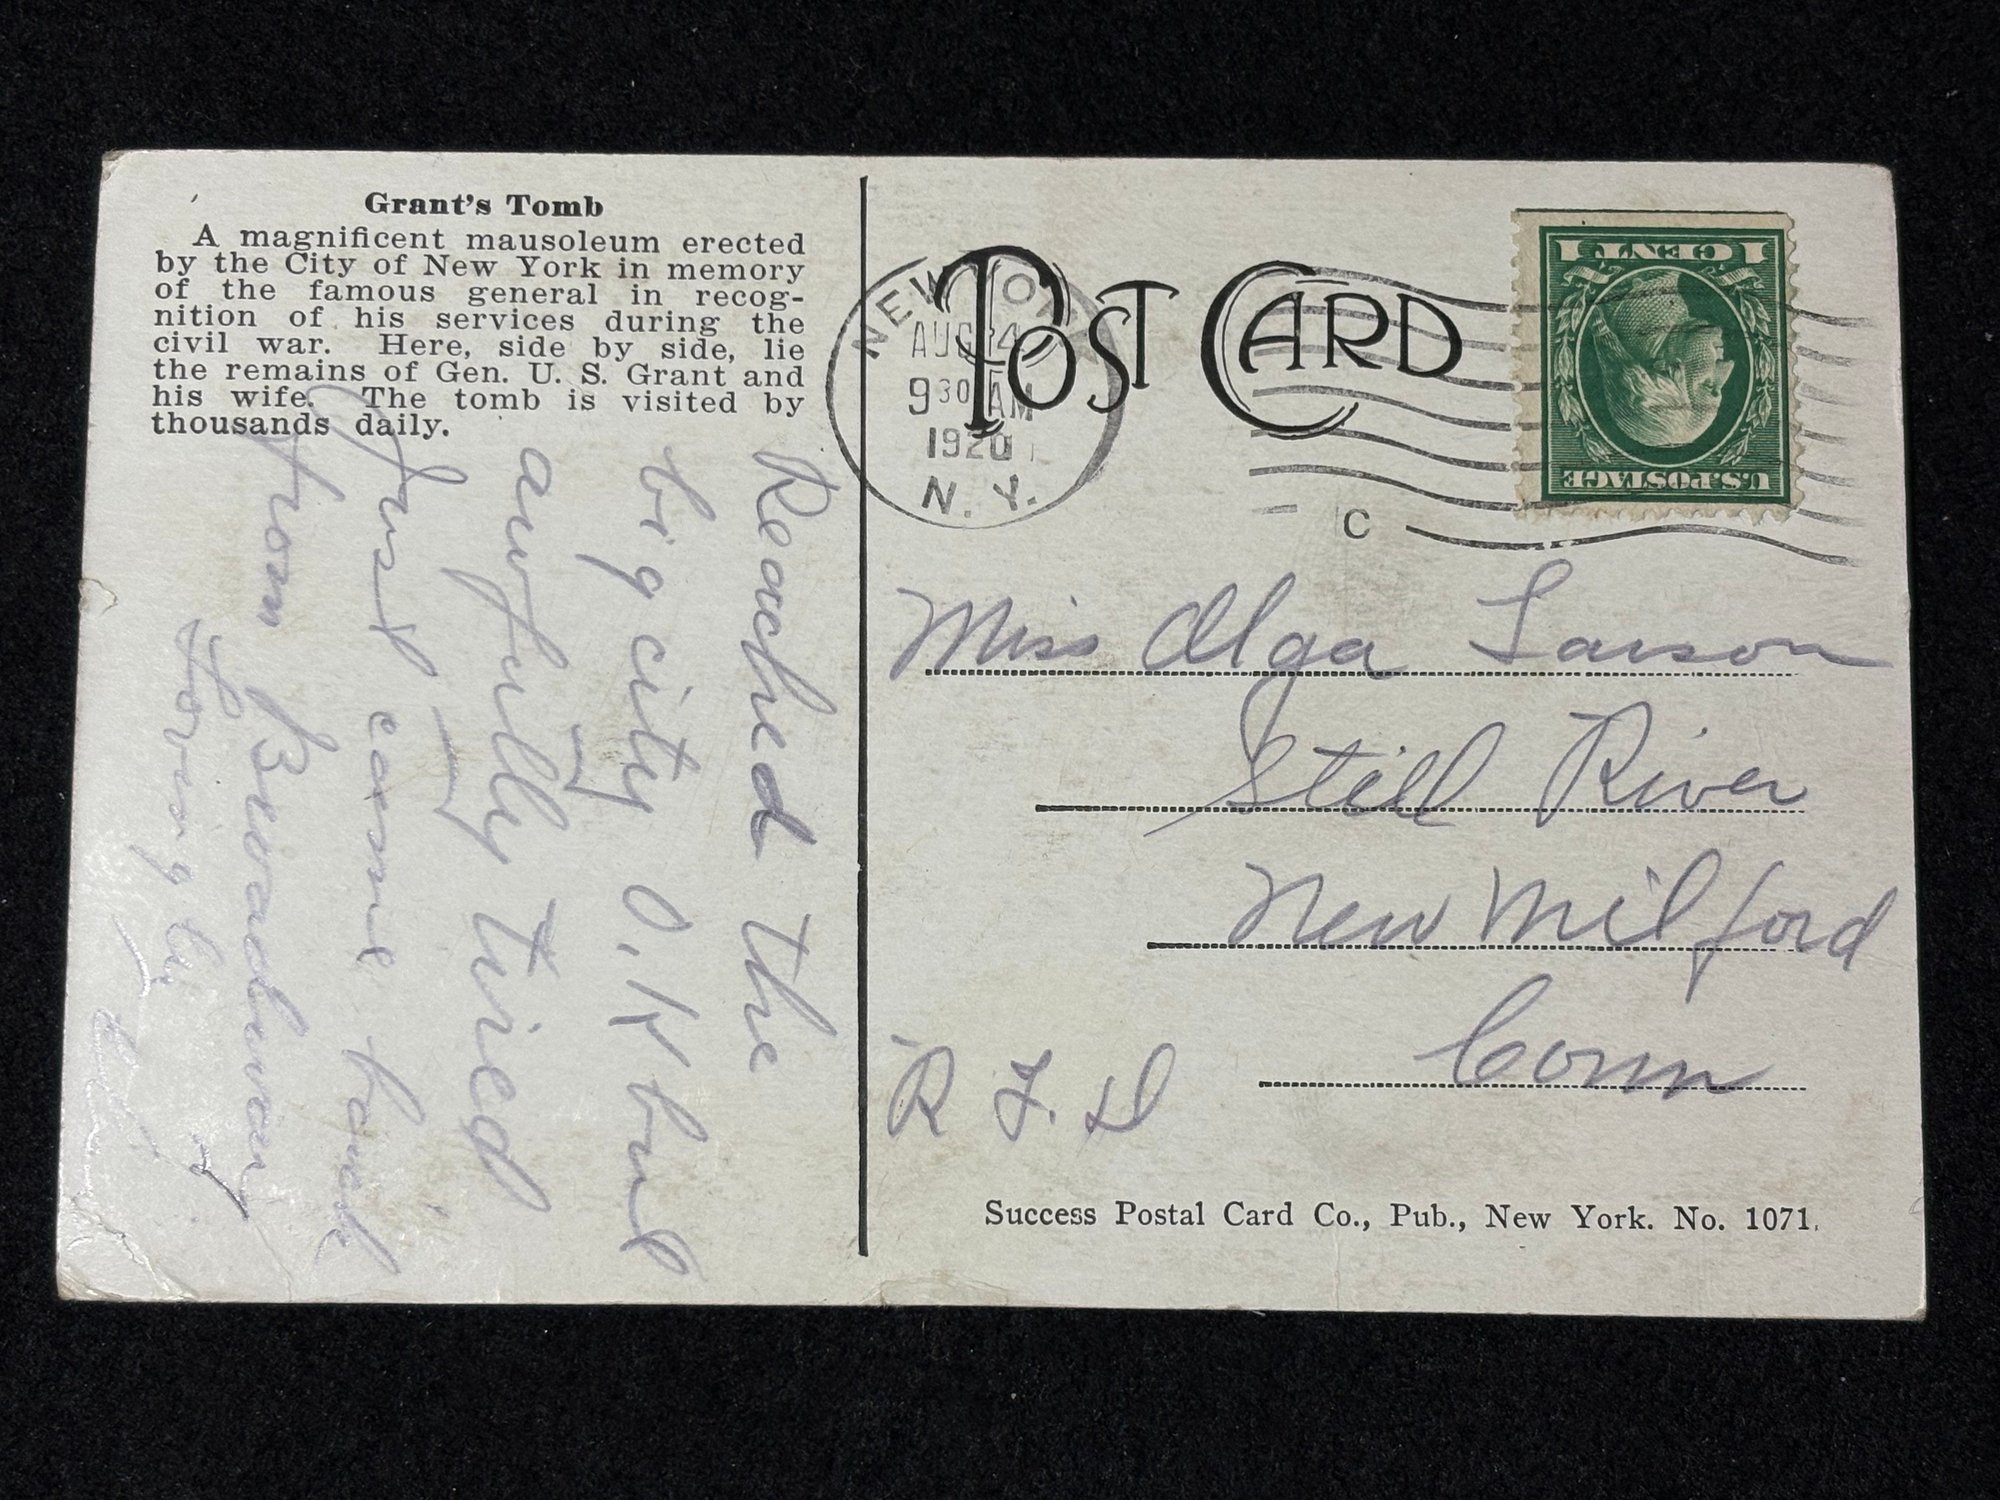 Grant's Tomb
A magnificent mausoleum erected
by the City of New York in memory
of the famous general in recog-
nition of his services during the
civil war. Here, side by side, lie
the remains of Gen. U. S. Grant and
his wife. The tomb is visited by
thousands daily.
Reached the
big city O.K but
awfully tired
Just came back
from Broadway
Loving
POST CARD
NEW YORK
AUG 24
9 30 AM
1920
N. Y.
C
1 CENT 1
U.S. POSTAGE
Miss Olga Larson
Still River
New Milford
Conn
R F. D
Success Postal Card Co., Pub., New York. No. 1071.